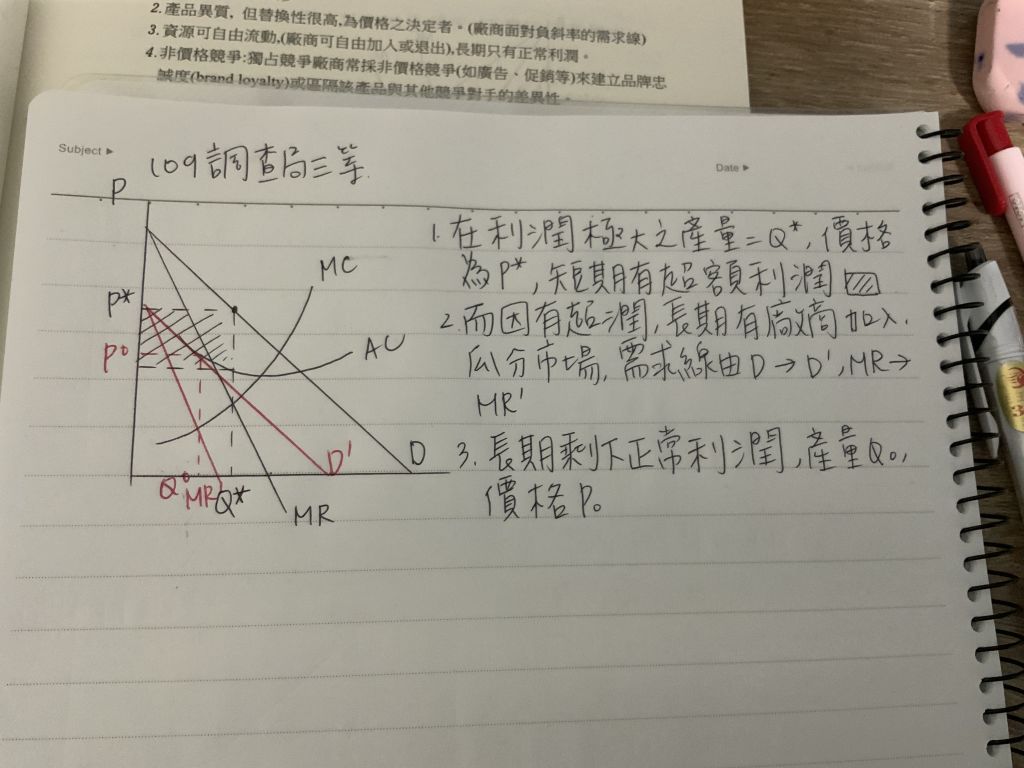 2.產品異質, 但替換性很高,為價格之決定者。(廠商面對負斜率的需求線)
3.資源可自由流動,(廠商可自由加入或退出),長期只有正常利潤。
4.非價格競爭:獨占競爭廠商常採非價格競爭(如廣告、促銷等)來建立品牌忠
誠度(brand loyalty)或區隔該產品與其他競爭對手的差異性。
Subject ▶
Date ▶
109調查局三等.
P
MC
P*
AC
P⁰
D'
D
Q⁰
MR
Q*
MR
1. 在利潤極大之產量=Q*, 價格
為P*, 短期有超額利潤
2.而因有超潤, 長期有廠商加入,
瓜分市場, 需求線由D→D', MR→
MR'
3. 長期剩下正常利潤, 產量Q₀,
價格P₀